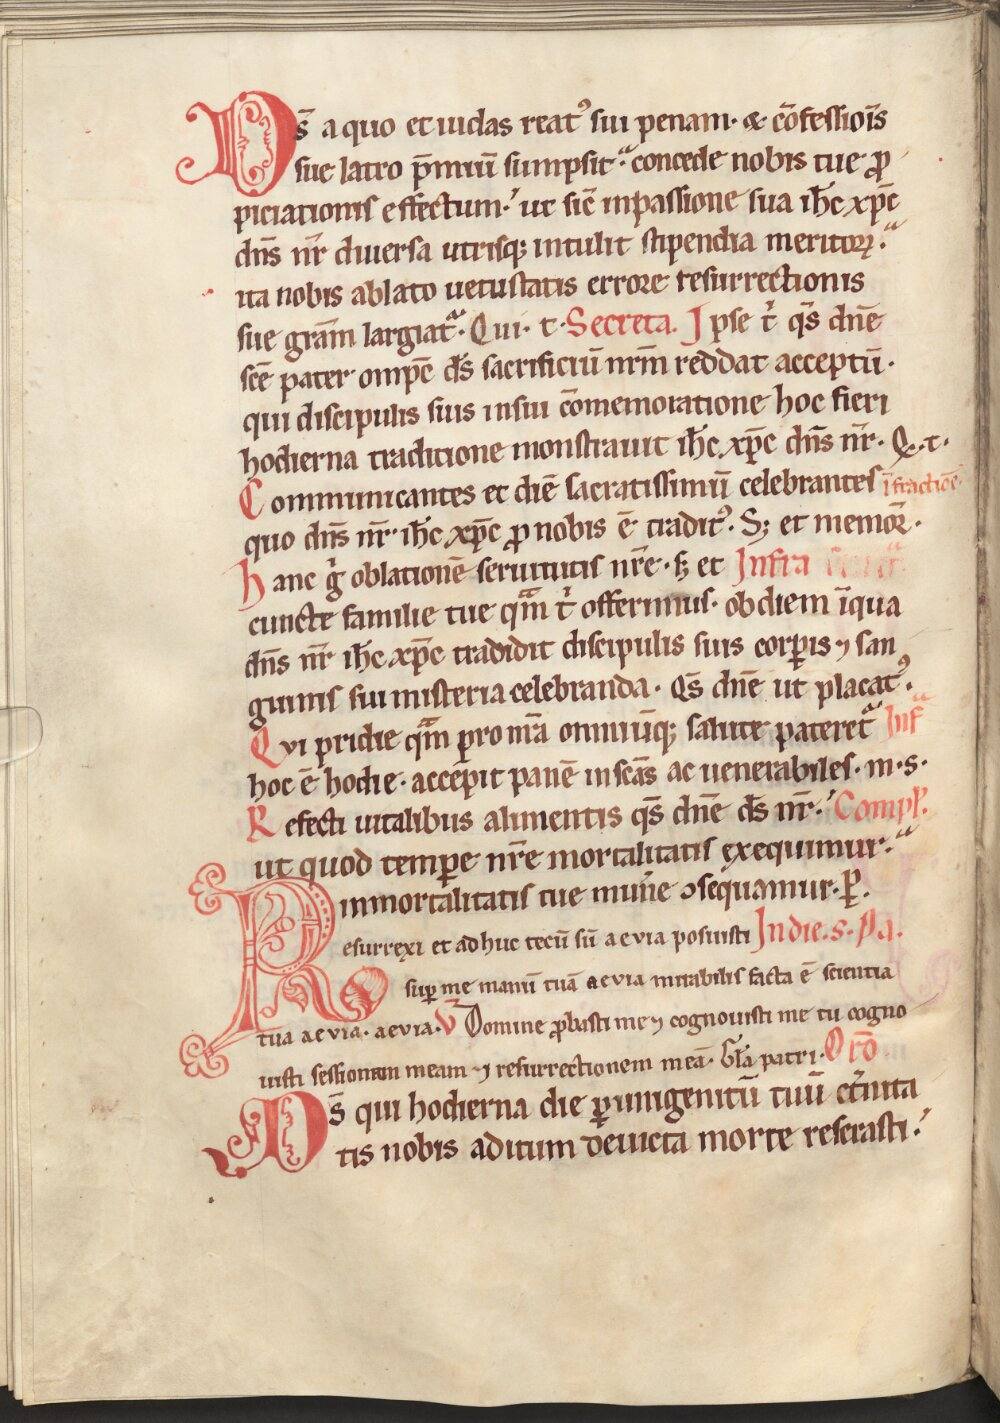 Ds̄ a quo et iudas reatꝰ sui penam· & cōfessiōis
sue latro p̄miū sumpsit· concede nobis tue ꝓ
piciationis effectum· ut sic̄ in passione sua ih̄c xp̄c
dn̄s nr̄ diuersa utrisq; intulit stipendia meritoꝝ·
ita nobis ablato uetustatis errore resurrectionis
sue gr̄am largiat᷑· Qui· t· Secreta. Ipse t̄ qs̄ dn̄e
sc̄e pater omp̄c ds̄ sacrificiū nr̄m reddat acceptū·
qui discipulis suis in sui c̄omemoratione hoc fieri
hodierna traditione monstrauit ih̄c xp̄c dn̄s nr̄· Q· t·
Communicantes et diē sacratissimū celebrantes ī fractiōe
quo dn̄s nr̄ ih̄c xp̄c ꝓ nobis ē traditꝰ· S; et memor̄·
hanc ḡ oblationē seruitutis nr̄e· s; et Infra
cuncte familie tue qm̄ t̄ offerimus· ob diem ī qua
dn̄s nr̄ ih̄c xp̄c tradidit discipulis suis corꝑis ⁊ san
guinis sui misteria celebranda· Qs̄ dn̄e ut placatꝰ·
Qvi pridie qm̄ pro nr̄a omniūq; salute pateret᷑ Inf̄
hoc ē hodie· accepit panē in sc̄as ac uenerabiles· m· s·
Refecti uitalibus alimentis qs̄ dn̄e ds̄ nr̄· Compl̄·
ut quod tempe nr̄e mortalitatis exequimur·
inmortalitatis tue mun̄e ꝯsequamur· ꝑ·
Resurrexi et adhuc tecū sū aevia posuisti In die· s· Pa·
suꝑ me manū tuā aevia mirabilis facta ē scientia
tua aevia· aevia· V̄ Domine ꝓbasti me ⁊ cognouisti me tu cogno
uisti sessionem meam ⁊ resurrectionem meā· Gl̄a patri· Orō
Ds̄ qui hodierna die ꝑ unigenitū tuū et̄nita
tis nobis aditum deuicta morte reserasti·